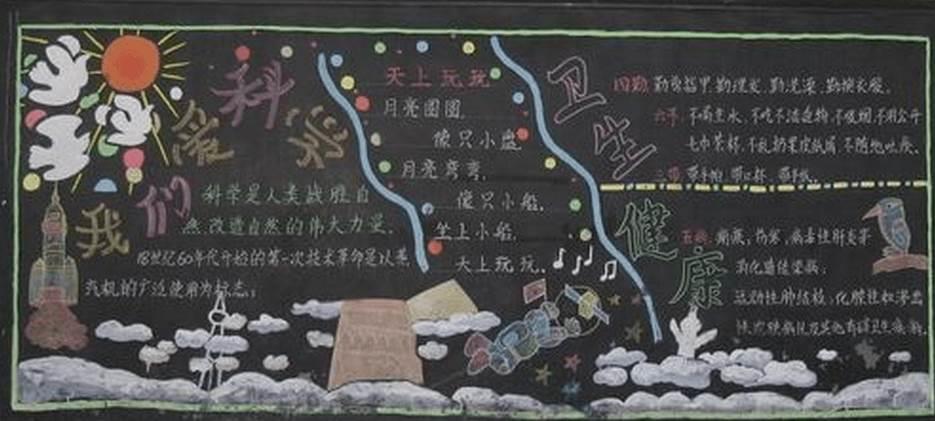 我们爱科学
科学是人类战胜自
然改造自然的伟大力量。
18世纪60年代开始的第一次技术革命是以蒸
汽机的广泛使用为标志。
天上玩玩
月亮圆圆,
像只小盘
月亮弯弯,
像只小船,
坐上小船,
天上玩玩、
卫生
四勤:勤剪指甲、勤理发、勤洗澡、勤换衣服。
六不:不喝生水、不吃不洁食物、不吸烟、不用公用
毛巾茶杯、不乱扔果皮纸屑、不随地吐痰。
三带:带手帕、带口杯、带手纸。
健康
五病:痢疾、伤寒、病毒性肝炎等
消化道传染病;
活动性肺结核、化脓性和渗出
性皮肤病以及其他有碍卫生疾病。